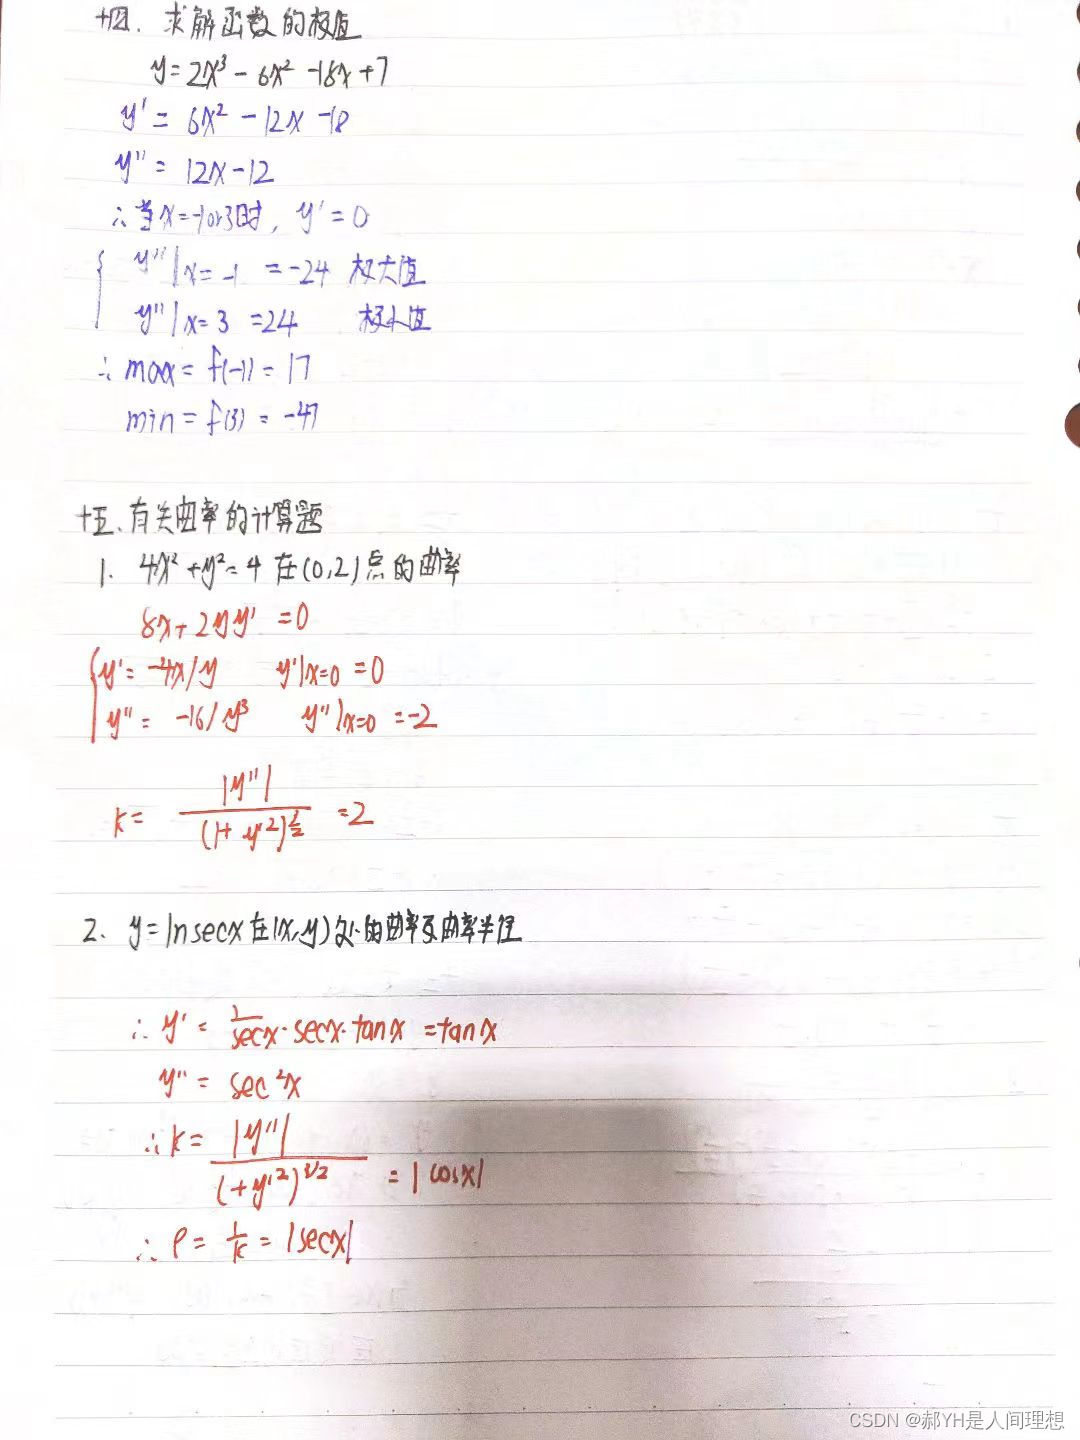 十四. 求解函数的极值
y=2x³-6x²-18x+7
y'=6x²-12x-18
y''=12x-12
∴当x=-1or3时, y'=0
y''|x=-1 =-24 极大值
y''|x=3 =24 极小值
∴max=f(-1)=17
min=f(3)=-47
十五.有关曲率的计算题
1. 4x²+y²=4在(0,2)点的曲率
8x+2yy'=0
y'=-4x/y y'|x=0 =0
y''=-16/y³ y''|x=0 =-2
k= |y''| / (1+y'²)^(3/2) =2
2. y=lnsecx在(x,y)处的曲率及曲率半径
∴y'= 1/secx·secx·tanx =tanx
y''= sec²x
∴k= |y''| / (1+y'²)^3/2 =|cosx|
∴ρ= 1/k =|secx|
CSDN @郝YH是人间理想